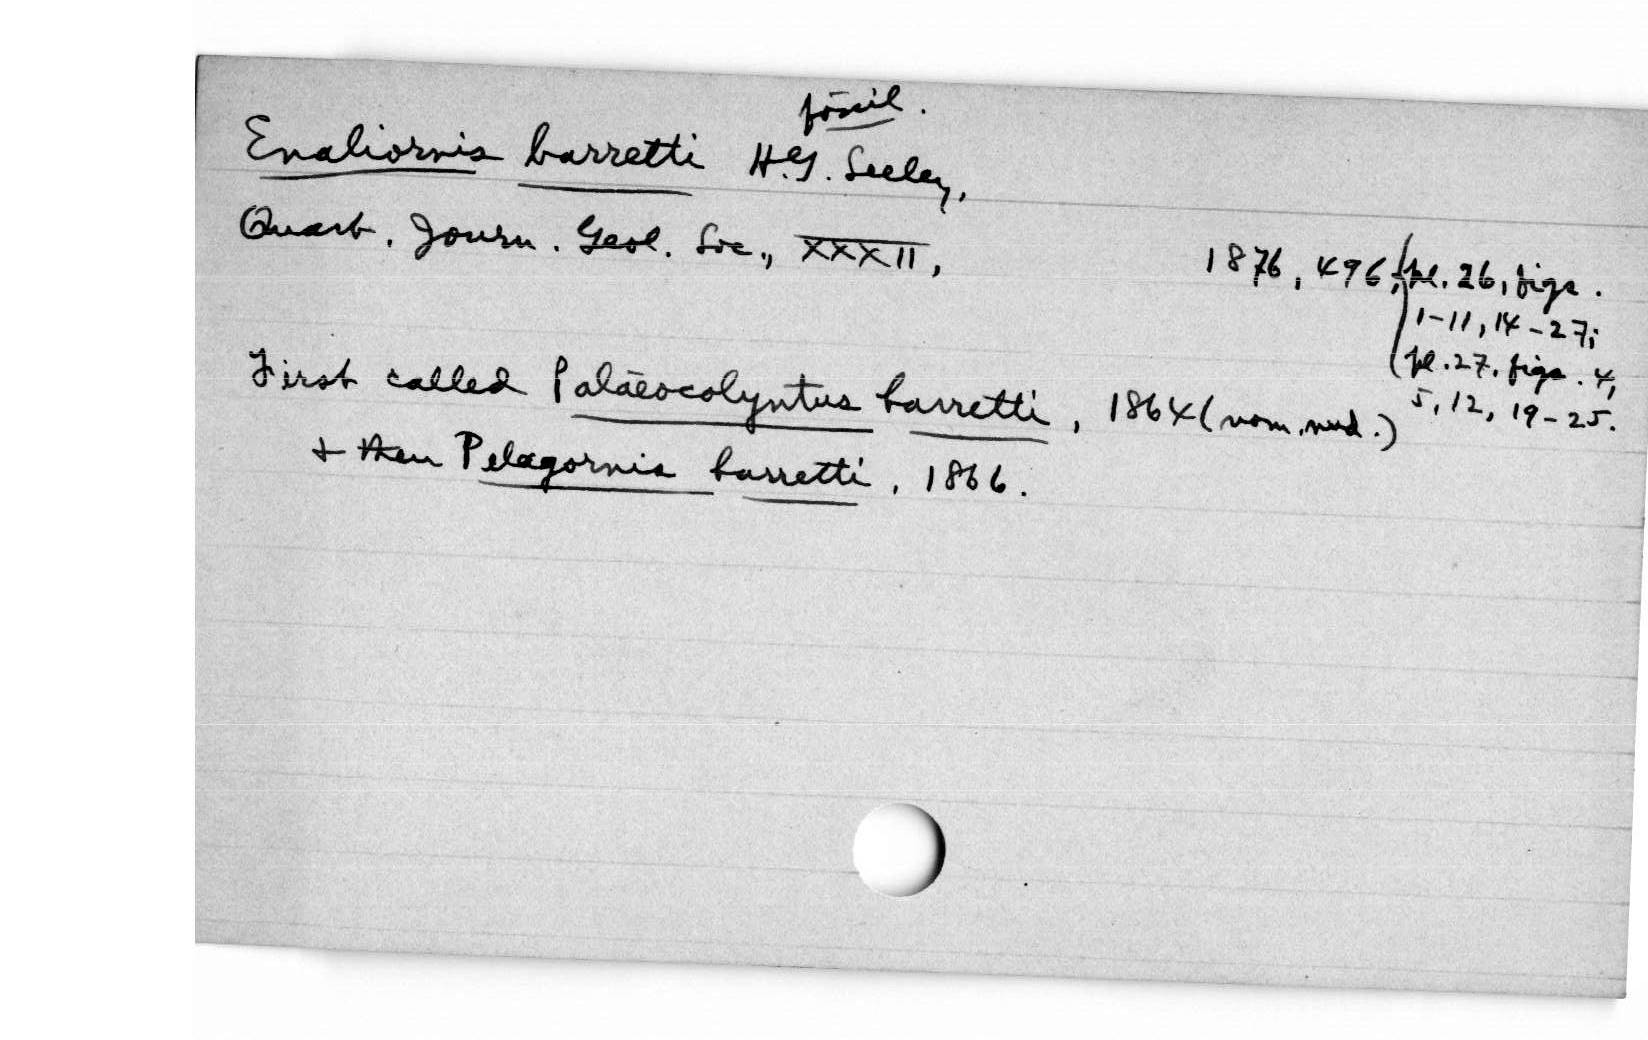 fossil.
Enaliornis barretti H.G. Seeley,
Quart. Journ. Geol. Soc., XXXII,
1876, 496, pl. 26, figs.
1-11, 14-27;
pl. 27. figs. 4,
5, 12, 19-25.
First called Palaeocolyntus barretti, 1864 (nom. nud.)
& then Pelagornis barretti, 1866.